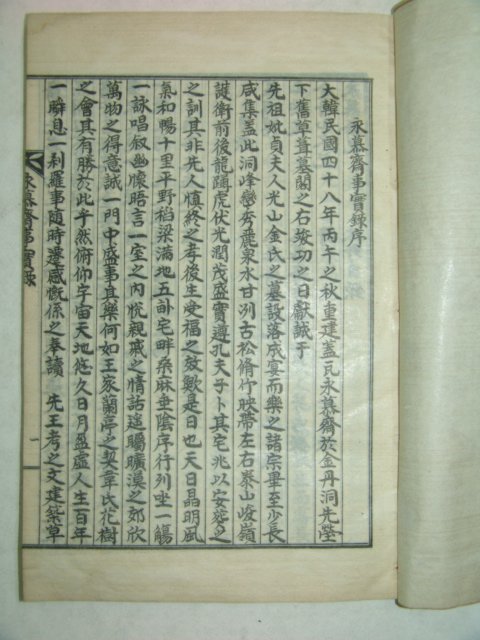 永慕齋事實錄序
大韓民國四十八年丙午之秋重建蓋瓦永慕齋於金丹洞先塋
下舊草葺墓閣之右竣功之日獻誠于
先祖妣貞夫人光山金氏之墓設落成宴而樂之諸宗畢至少長
咸集盖此洞峰巒秀麗泉水甘冽古松脩竹映帶左右泰山峻嶺
護衛前後龍蹲虎伏光潤茂盛實遵孔夫子卜其宅兆以安窆之
之訓其非先人愼終之孝後生受福之效歟是日也天日晶明風
氣和暢十里平野稻粱滿地五畝宅畔桑麻垂陰序行列坐一觴
一詠唱叙幽懷晤言一室之內悅親戚之情話遥矚曠漠之郊欣
萬物之得意誠一門中盛事其樂何如王家蘭亭之契韋氏花樹
之會其有勝於此乎然俯仰宇宙天地悠久日月盈虛人生百年
一瞬息一刹羅事随時遷感慨係之奉讀 先王考之文建築草
永慕齋事實錄
一